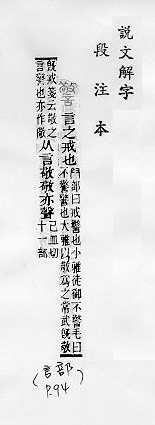 說文解字
段注本
言之戒也
𠬞部曰戒警也小雅徒御不警毛曰
不警警也大雅以敬爲之常武旣敬
旣戒箋云敬之
言警也亦作儆
从言敬敬亦聲
己皿切
十一部
(言部)
P.94